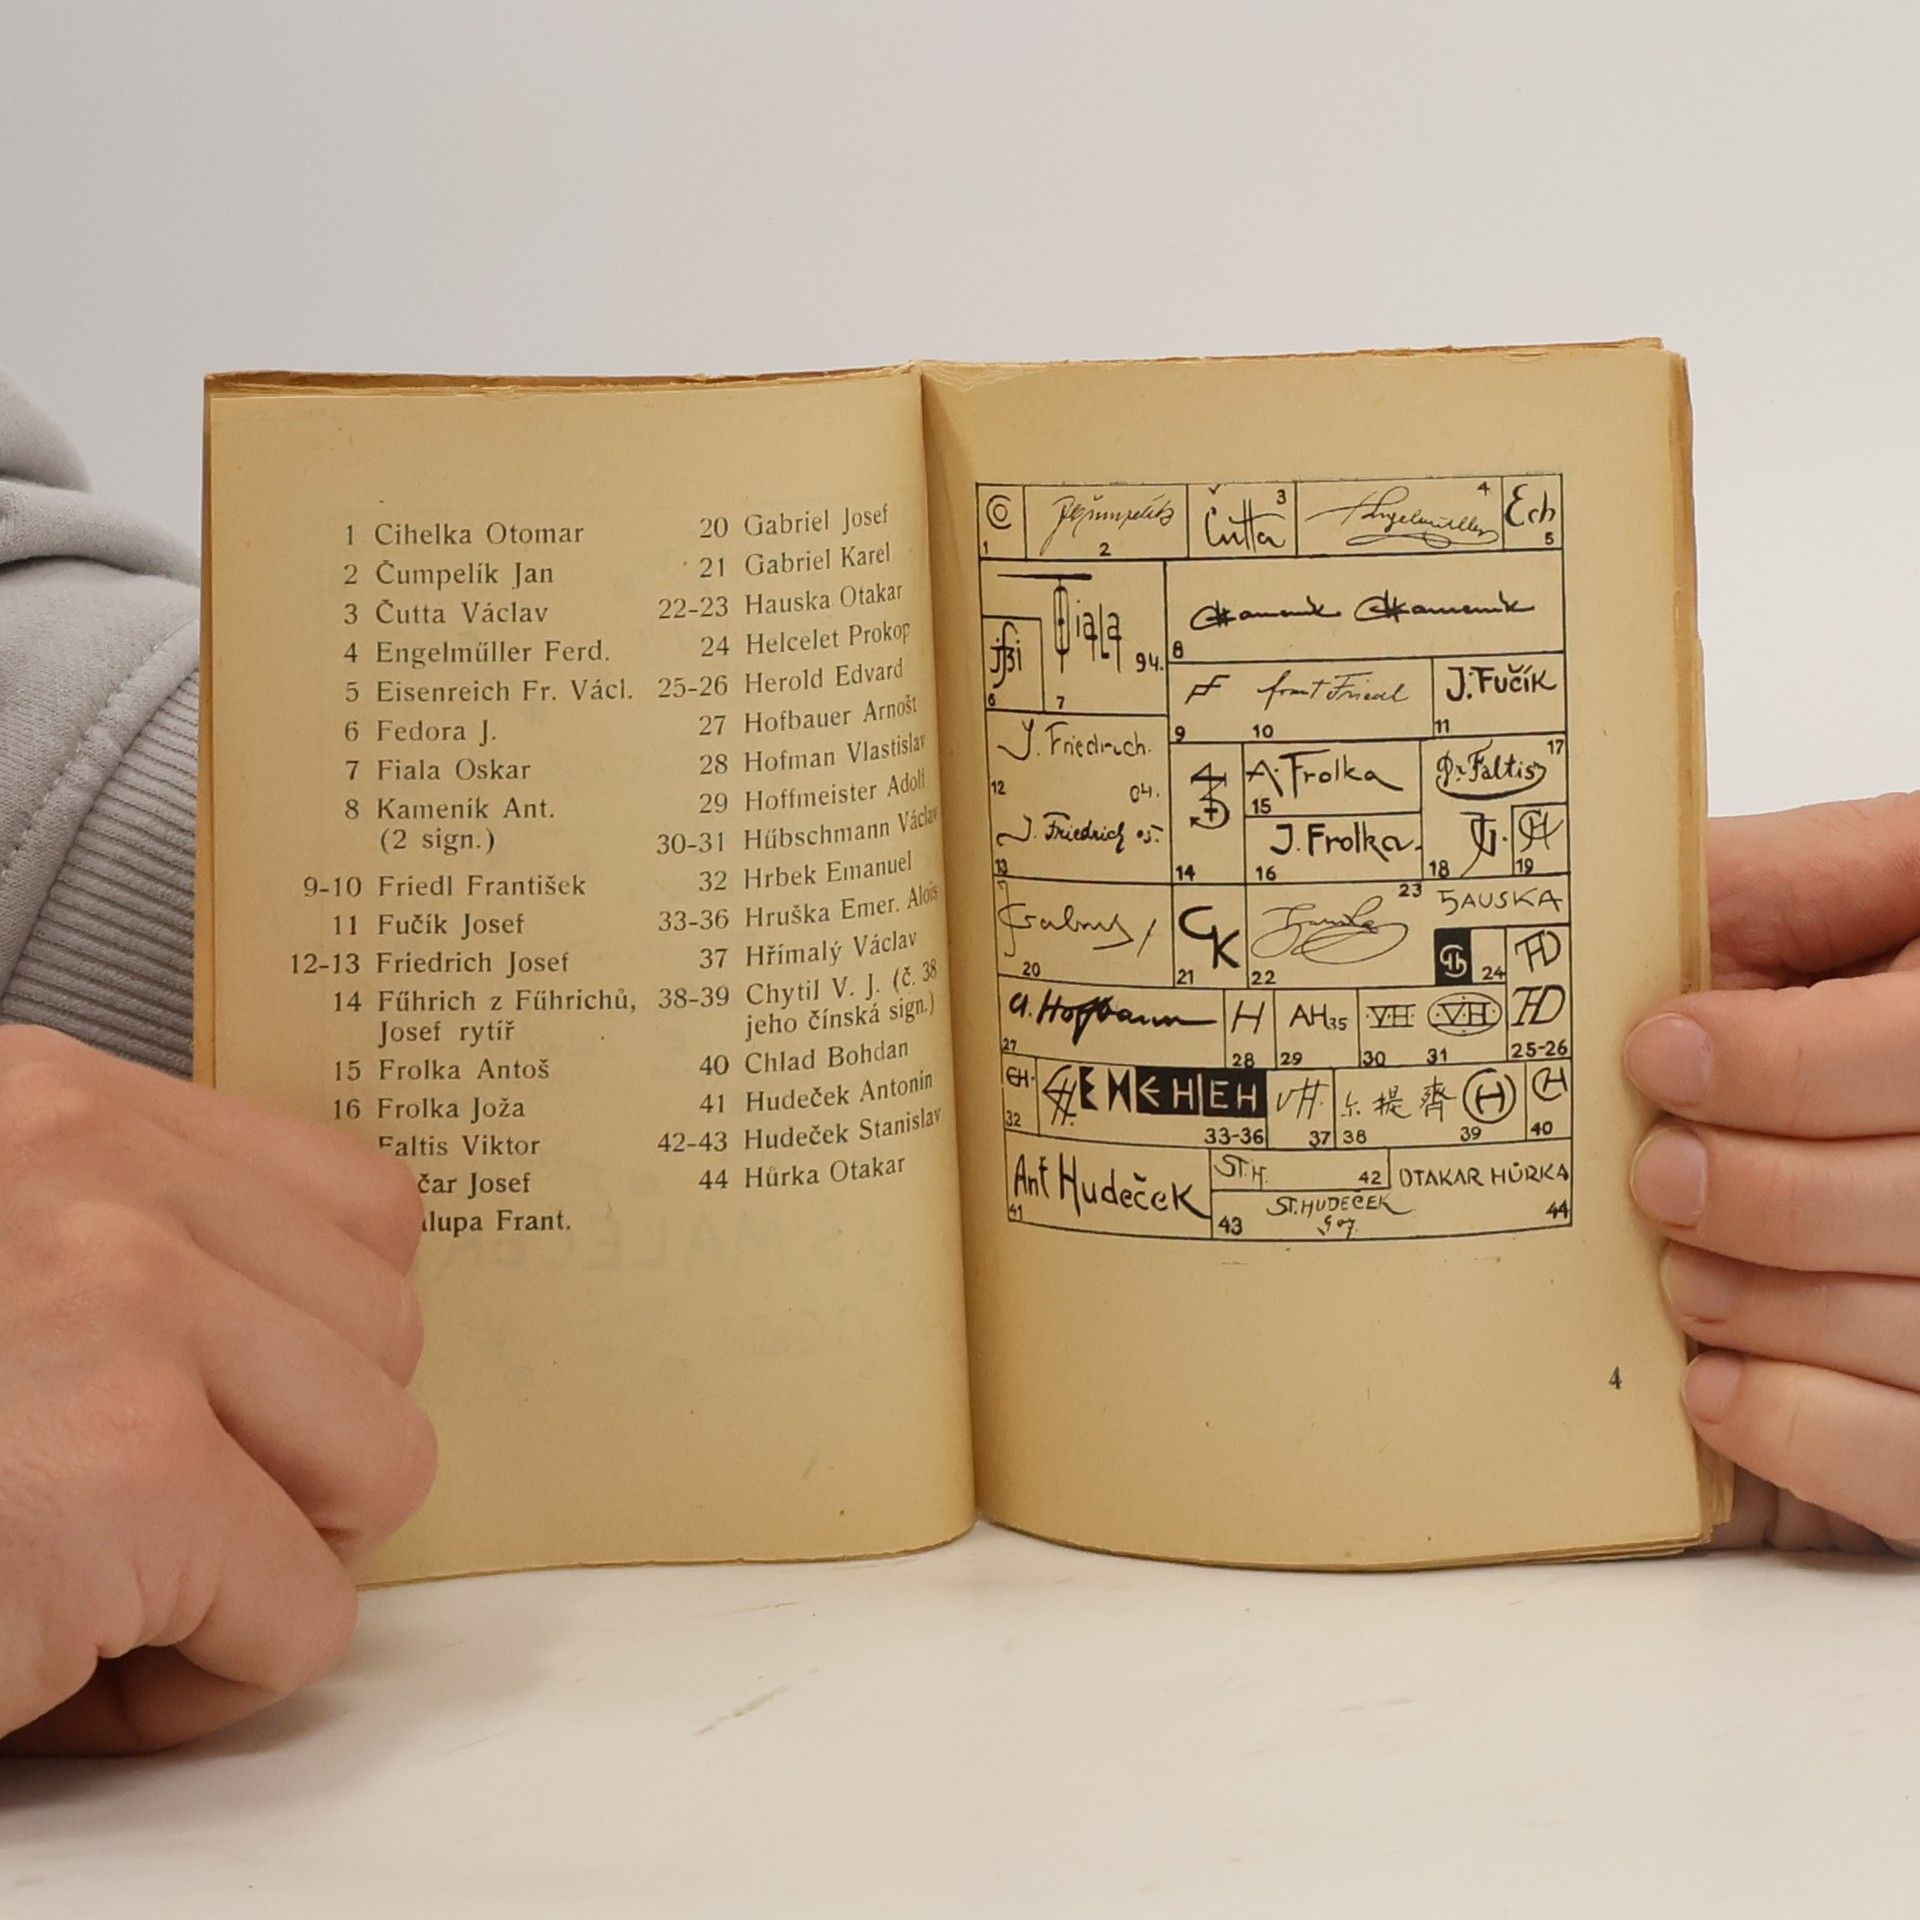 1 Cihelka Otomar
2 Čumpelík Jan
3 Čutta Václav
4 Engelműller Ferd.
5 Eisenreich Fr. Václ.
6 Fedora J.
7 Fiala Oskar
8 Kameník Ant.
(2 sign.)
9-10 Friedl František
11 Fučík Josef
12-13 Friedrich Josef
14 Fűhrich z Fűhrichů,
Josef rytíř
15 Frolka Antoš
16 Frolka Joža
Faltis Viktor
Josef
Frant.
20 Gabriel Josef
21 Gabriel Karel
22-23 Hauska Otakar
24 Helcelet Prokop
25-26 Herold Edvard
27 Hofbauer Arnošt
28 Hofman Vlastislav
29 Hoffmeister Adolf
30-31 Hűbschmann Václav
32 Hrbek Emanuel
33-36 Hruška Emer. Alois
37 Hřímalý Václav
38-39 Chytil V. J. (č. 38
jeho čínská sign.)
40 Chlad Bohdan
41 Hudeček Antonín
42-43 Hudeček Stanislav
44 Hůrka Otakar
1
2
Čutta 3
4
Ech 5
6
Fiala 94. 7
Kamenik Kamenik 8
9
frant Friedl 10
J. Fučík 11
J. Friedrich. 04. 12
J. Friedrich 05. 13
14
A. Frolka 15
J. Frolka. 16
Dr. Faltis 17
18
19
20
GK 21
22
23 HAUSKA
24
25-26
A. Hofbauer 27
H 28
AH35 29
VH 30
VH 31
EH 32
EH EH EH EH 33-36
VH. 37
提齋 38
39
40
Ant Hudeček 41
ST.H. 42
ST.HUDEČEK 907. 43
OTAKAR HŮRKA 44
4